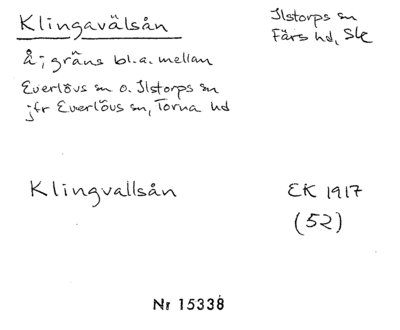 Klingavälsån
Ilstorps sn
Färs hd, Sk
Å; gräns bl.a. mellan
Everlövs sn o. Ilstorps sn
jfr Everlövs sn, Torna hd
Klingvallsån
EK 1917
(52)
Nr 15338